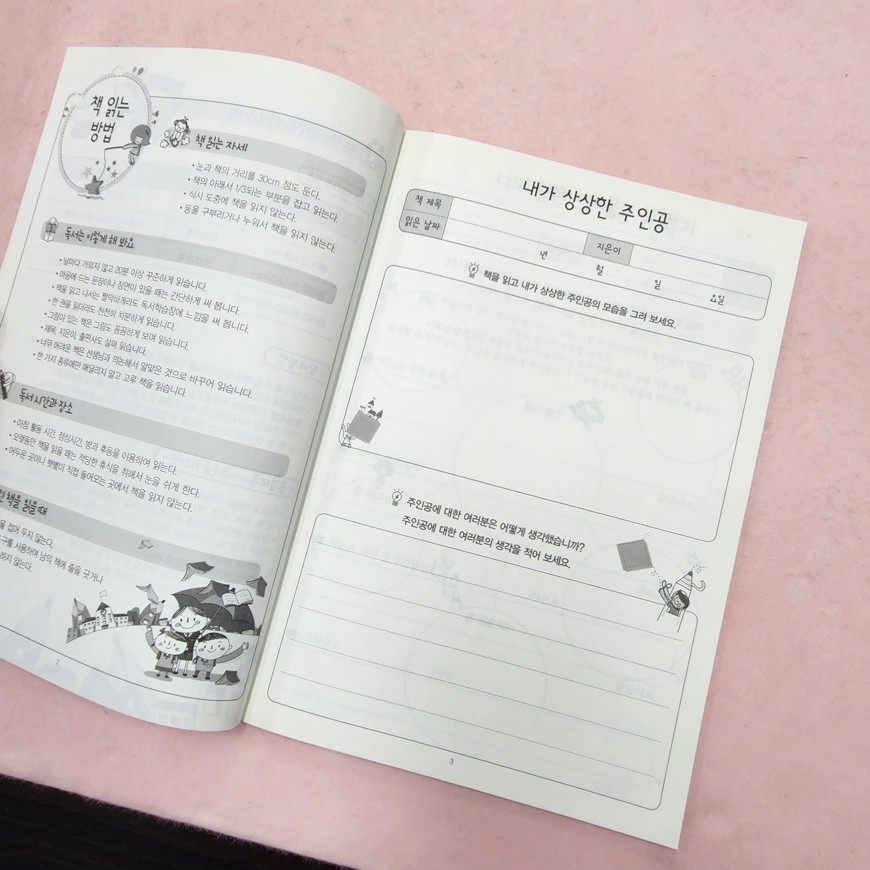 책 읽는
방법
책 읽는 자세
• 눈과 책의 거리를 30cm 정도 둔다.
• 책의 아래서 1/3되는 부분을 잡고 읽는다.
• 식사 도중에 책을 읽지 않는다.
• 등을 구부리거나 누워서 책을 읽지 않는다.
독서는 이렇게 해 봐요
• 날마다 거르지 않고 20분 이상 꾸준하게 읽습니다.
• 마음에 드는 문장이나 장면이 있을 때는 간단하게 써 봅니다.
• 책을 읽고 나서는 짤막하게라도 독서학습장에 느낌을 써 봅니다.
• 한 권을 읽더라도 천천히 차분하게 읽습니다.
• 그림이 있는 책은 그림도 꼼꼼하게 보며 읽습니다.
• 제목, 지은이, 출판사도 살펴 읽습니다.
• 너무 어려운 책은 선생님과 의논해서 알맞은 것으로 바꾸어 읽습니다.
• 한 가지 종류에만 매달리지 말고 고루 책을 읽습니다.
독서 시간과 장소
• 아침 활동 시간, 점심시간, 방과 후 등을 이용하여 읽는다.
• 오랫동안 책을 읽을 때는 적당한 휴식을 취해서 눈을 쉬게 한다.
• 어두운 곳이나 햇볕이 직접 들어오는 곳에서 책을 읽지 않는다.
책을 읽을 때
접어 두지 않는다.
구를 사용하여 남의 책에 줄을 긋거나
하지 않는다.
2
내가 상상한 주인공
책 제목
지은이
읽은 날짜
년 월 일 요일
책을 읽고 내가 상상한 주인공의 모습을 그려 보세요.
주인공에 대한 여러분은 어떻게 생각했습니까?
주인공에 대한 여러분의 생각을 적어 보세요.
3